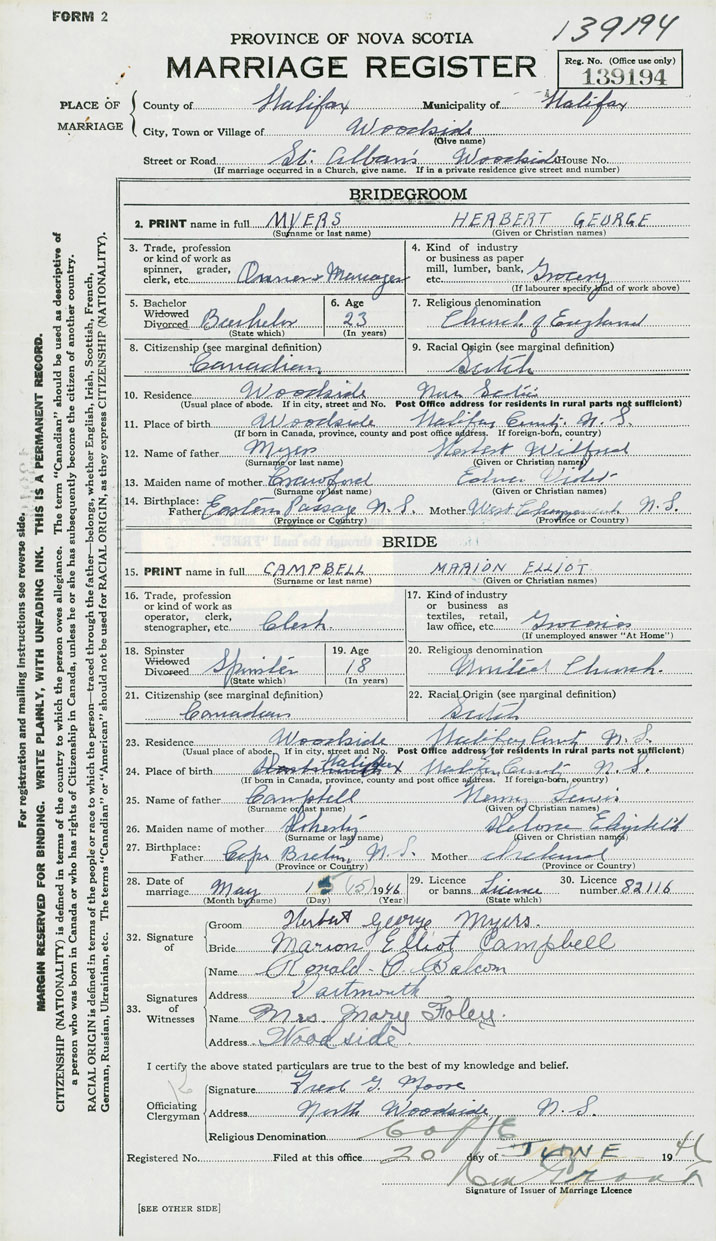 FORM 2
139194
PROVINCE OF NOVA SCOTIA
MARRIAGE REGISTER
Reg. No. (Office use only)
139194
PLACE OF MARRIAGE
County of Halifax Municipality of Halifax
City, Town or Village of Woodside
(Give name)
Street or Road St. Alban's Woodside House No.
(If marriage occurred in a Church, give name. If in a private residence give street and number)
BRIDEGROOM
2. PRINT name in full MYERS HERBERT GEORGE
(Surname or last name) (Given or Christian names)
3. Trade, profession or kind of work as spinner, grader, clerk, etc. Owner & Manager
4. Kind of industry or business as paper mill, lumber, bank, etc. Grocery
(If labourer specify kind of work above)
5. Bachelor Widowed Divorced Bachelor
(State which)
6. Age 23
(In years)
7. Religious denomination
Church of England
8. Citizenship (see marginal definition)
Canadian
9. Racial Origin (see marginal definition)
Scotch
10. Residence Woodside Nova Scotia
(Usual place of abode. If in city, street and No. Post Office address for residents in rural parts not sufficient)
11. Place of birth Woodside Halifax County N.S.
(If born in Canada, province, county and post office address. If foreign-born, country)
12. Name of father Myers Herbert Wilfred
(Surname or last name) (Given or Christian names)
13. Maiden name of mother Crawford Edna Violet
(Surname or last name) (Given or Christian names)
14. Birthplace: Father Eastern Passage N.S. Mother West N.S.
(Province or Country) (Province or Country)
BRIDE
15. PRINT name in full CAMPBELL MARION ELLIOT
(Surname or last name) (Given or Christian names)
16. Trade, profession or kind of work as operator, clerk, stenographer, etc. Clerk.
17. Kind of industry or business as textiles, retail, law office, etc. Groceries
(If unemployed answer "At Home")
18. Spinster Widowed Divorced Spinster
(State which)
19. Age 18
(In years)
20. Religious denomination
United Church.
21. Citizenship (see marginal definition)
Canadian
22. Racial Origin (see marginal definition)
Scotch
23. Residence Woodside Halifax County N.S.
(Usual place of abode. If in city, street and No. Post Office address for residents in rural parts not sufficient)
24. Place of birth Halifax Halifax County N.S.
(If born in Canada, province, county and post office address. If foreign-born, country)
25. Name of father Campbell Henry Lewis
(Surname or last name) (Given or Christian names)
26. Maiden name of mother Doherty Elizabeth
(Surname or last name) (Given or Christian names)
27. Birthplace: Father Cape Breton, N.S. Mother
(Province or Country) (Province or Country)
28. Date of marriage May 15 (15) 1946
(Month by name) (Day) (Year)
29. Licence or banns Licence
(State which)
30. Licence number 82116
32. Signature of
Groom Herbert George Myers.
Bride Marion Elliot Campbell
33. Signatures of Witnesses
Name Ronald O. Balcom
Address Dartmouth
Name Mrs. Mary Foley.
Address Woodside.
I certify the above stated particulars are true to the best of my knowledge and belief.
Officiating Clergyman
Signature Fred G. Moore
Address North Woodside N.S.
Religious Denomination C of E
Registered No. Filed at this office 20 day of JUNE 1946
Signature of Issuer of Marriage Licence
[SEE OTHER SIDE]
For registration and mailing instructions see reverse side.
MARGIN RESERVED FOR BINDING. WRITE PLAINLY, WITH UNFADING INK. THIS IS A PERMANENT RECORD.
CITIZENSHIP (NATIONALITY) is defined in terms of the country to which the person owes allegiance. The term "Canadian" should be used as descriptive of
a person who was born in Canada or who has rights of Citizenship in Canada, unless he or she has subsequently become the citizen of another country.
RACIAL ORIGIN is defined in terms of the people or race to which the person—traced through the father—belongs, whether English, Irish, Scottish, French,
German, Russian, Ukrainian, etc. The terms "Canadian" or "American" should not be used for RACIAL ORIGIN, as they express CITIZENSHIP (NATIONALITY).